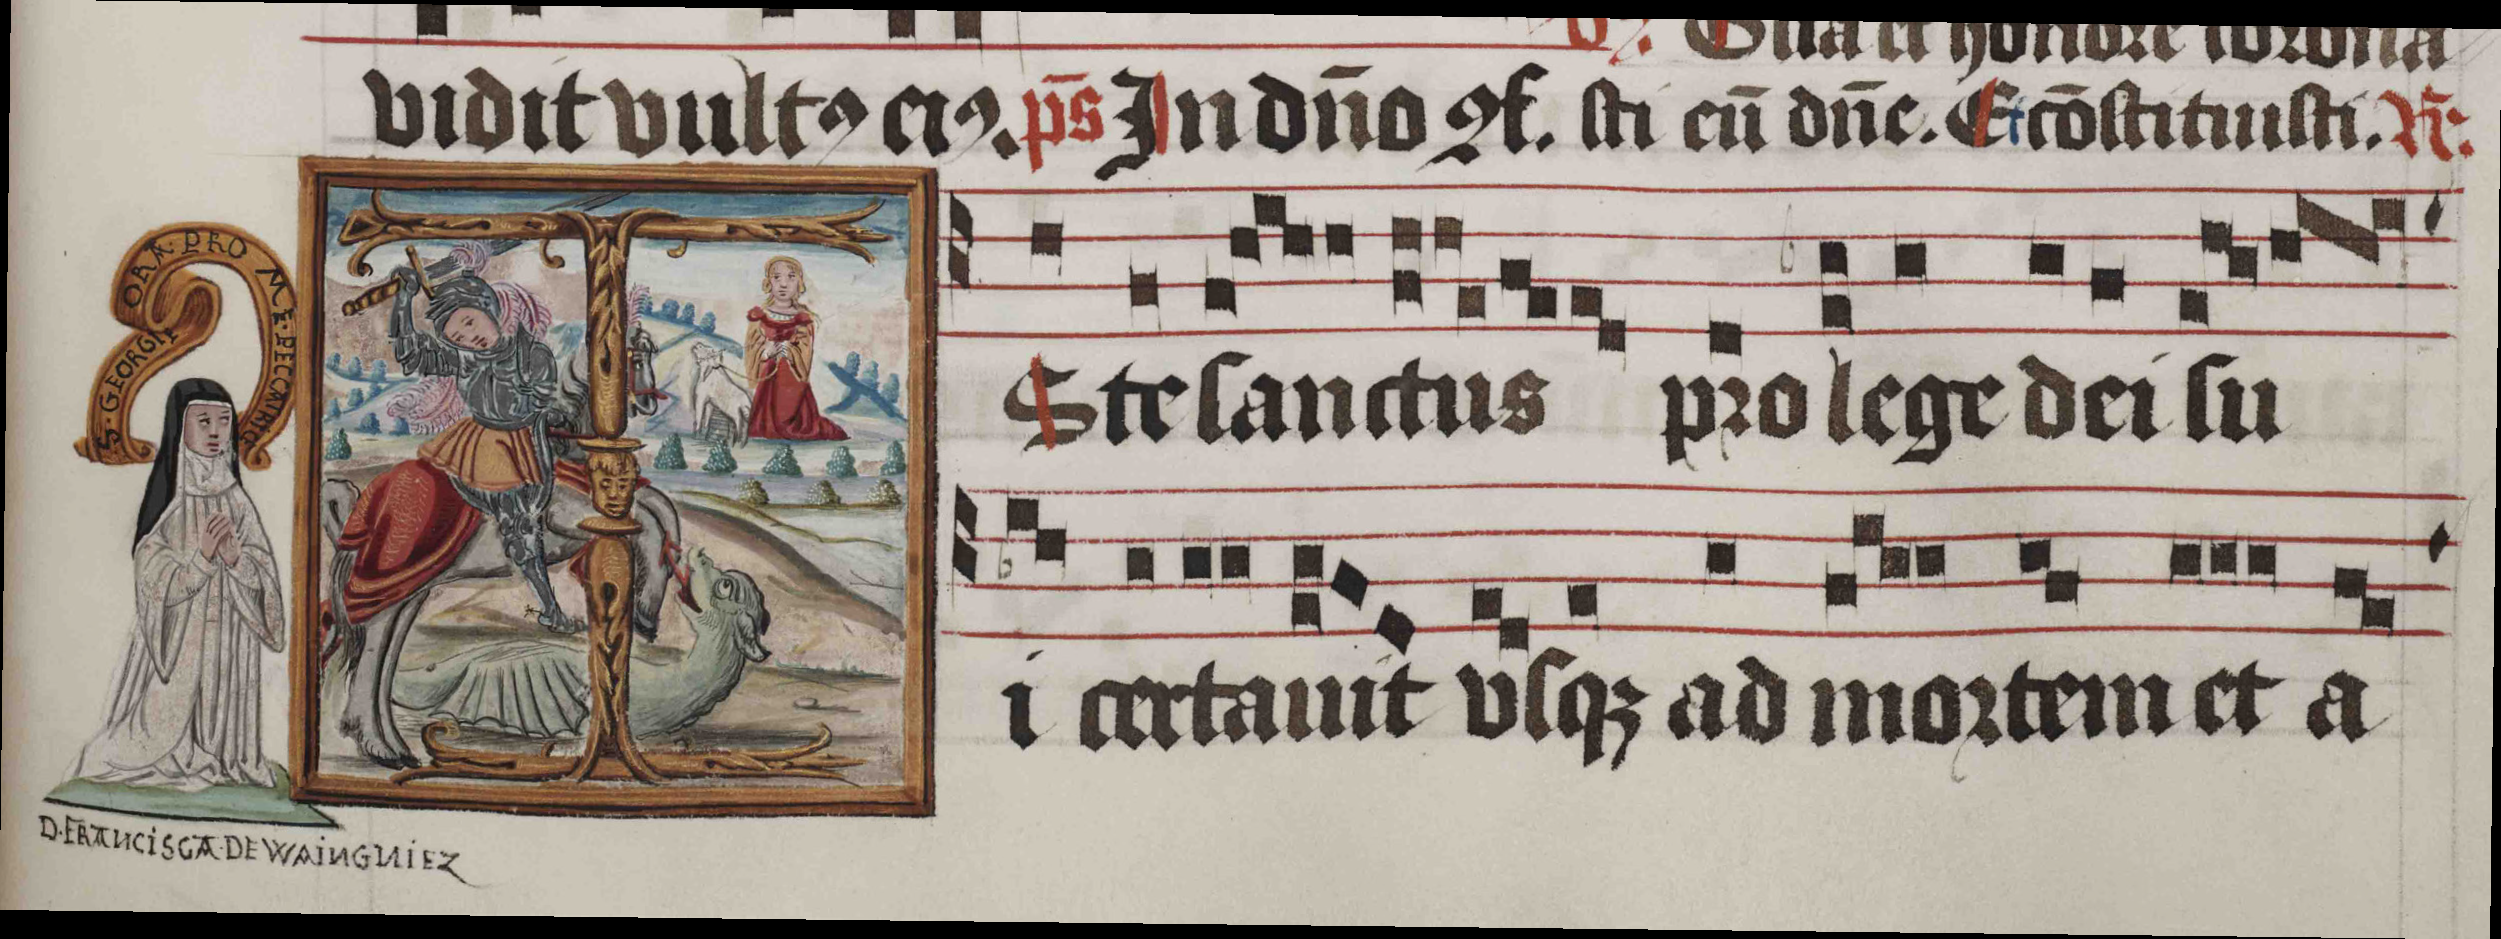 ℣. Gl̃ia et honore corona
vidit vultꝰ eiꝰ. p̄s In dn̄o ꝯf. sti cū dn̄e. Et cōstituisti. R̄:
S. GEORGI ORA PRO ME PECCATRICE
I Ste sanctus pro lege dei su
i certauit vsqꝫ ad mortem et a
D. FRANCISCA DE WAINGNIEZ